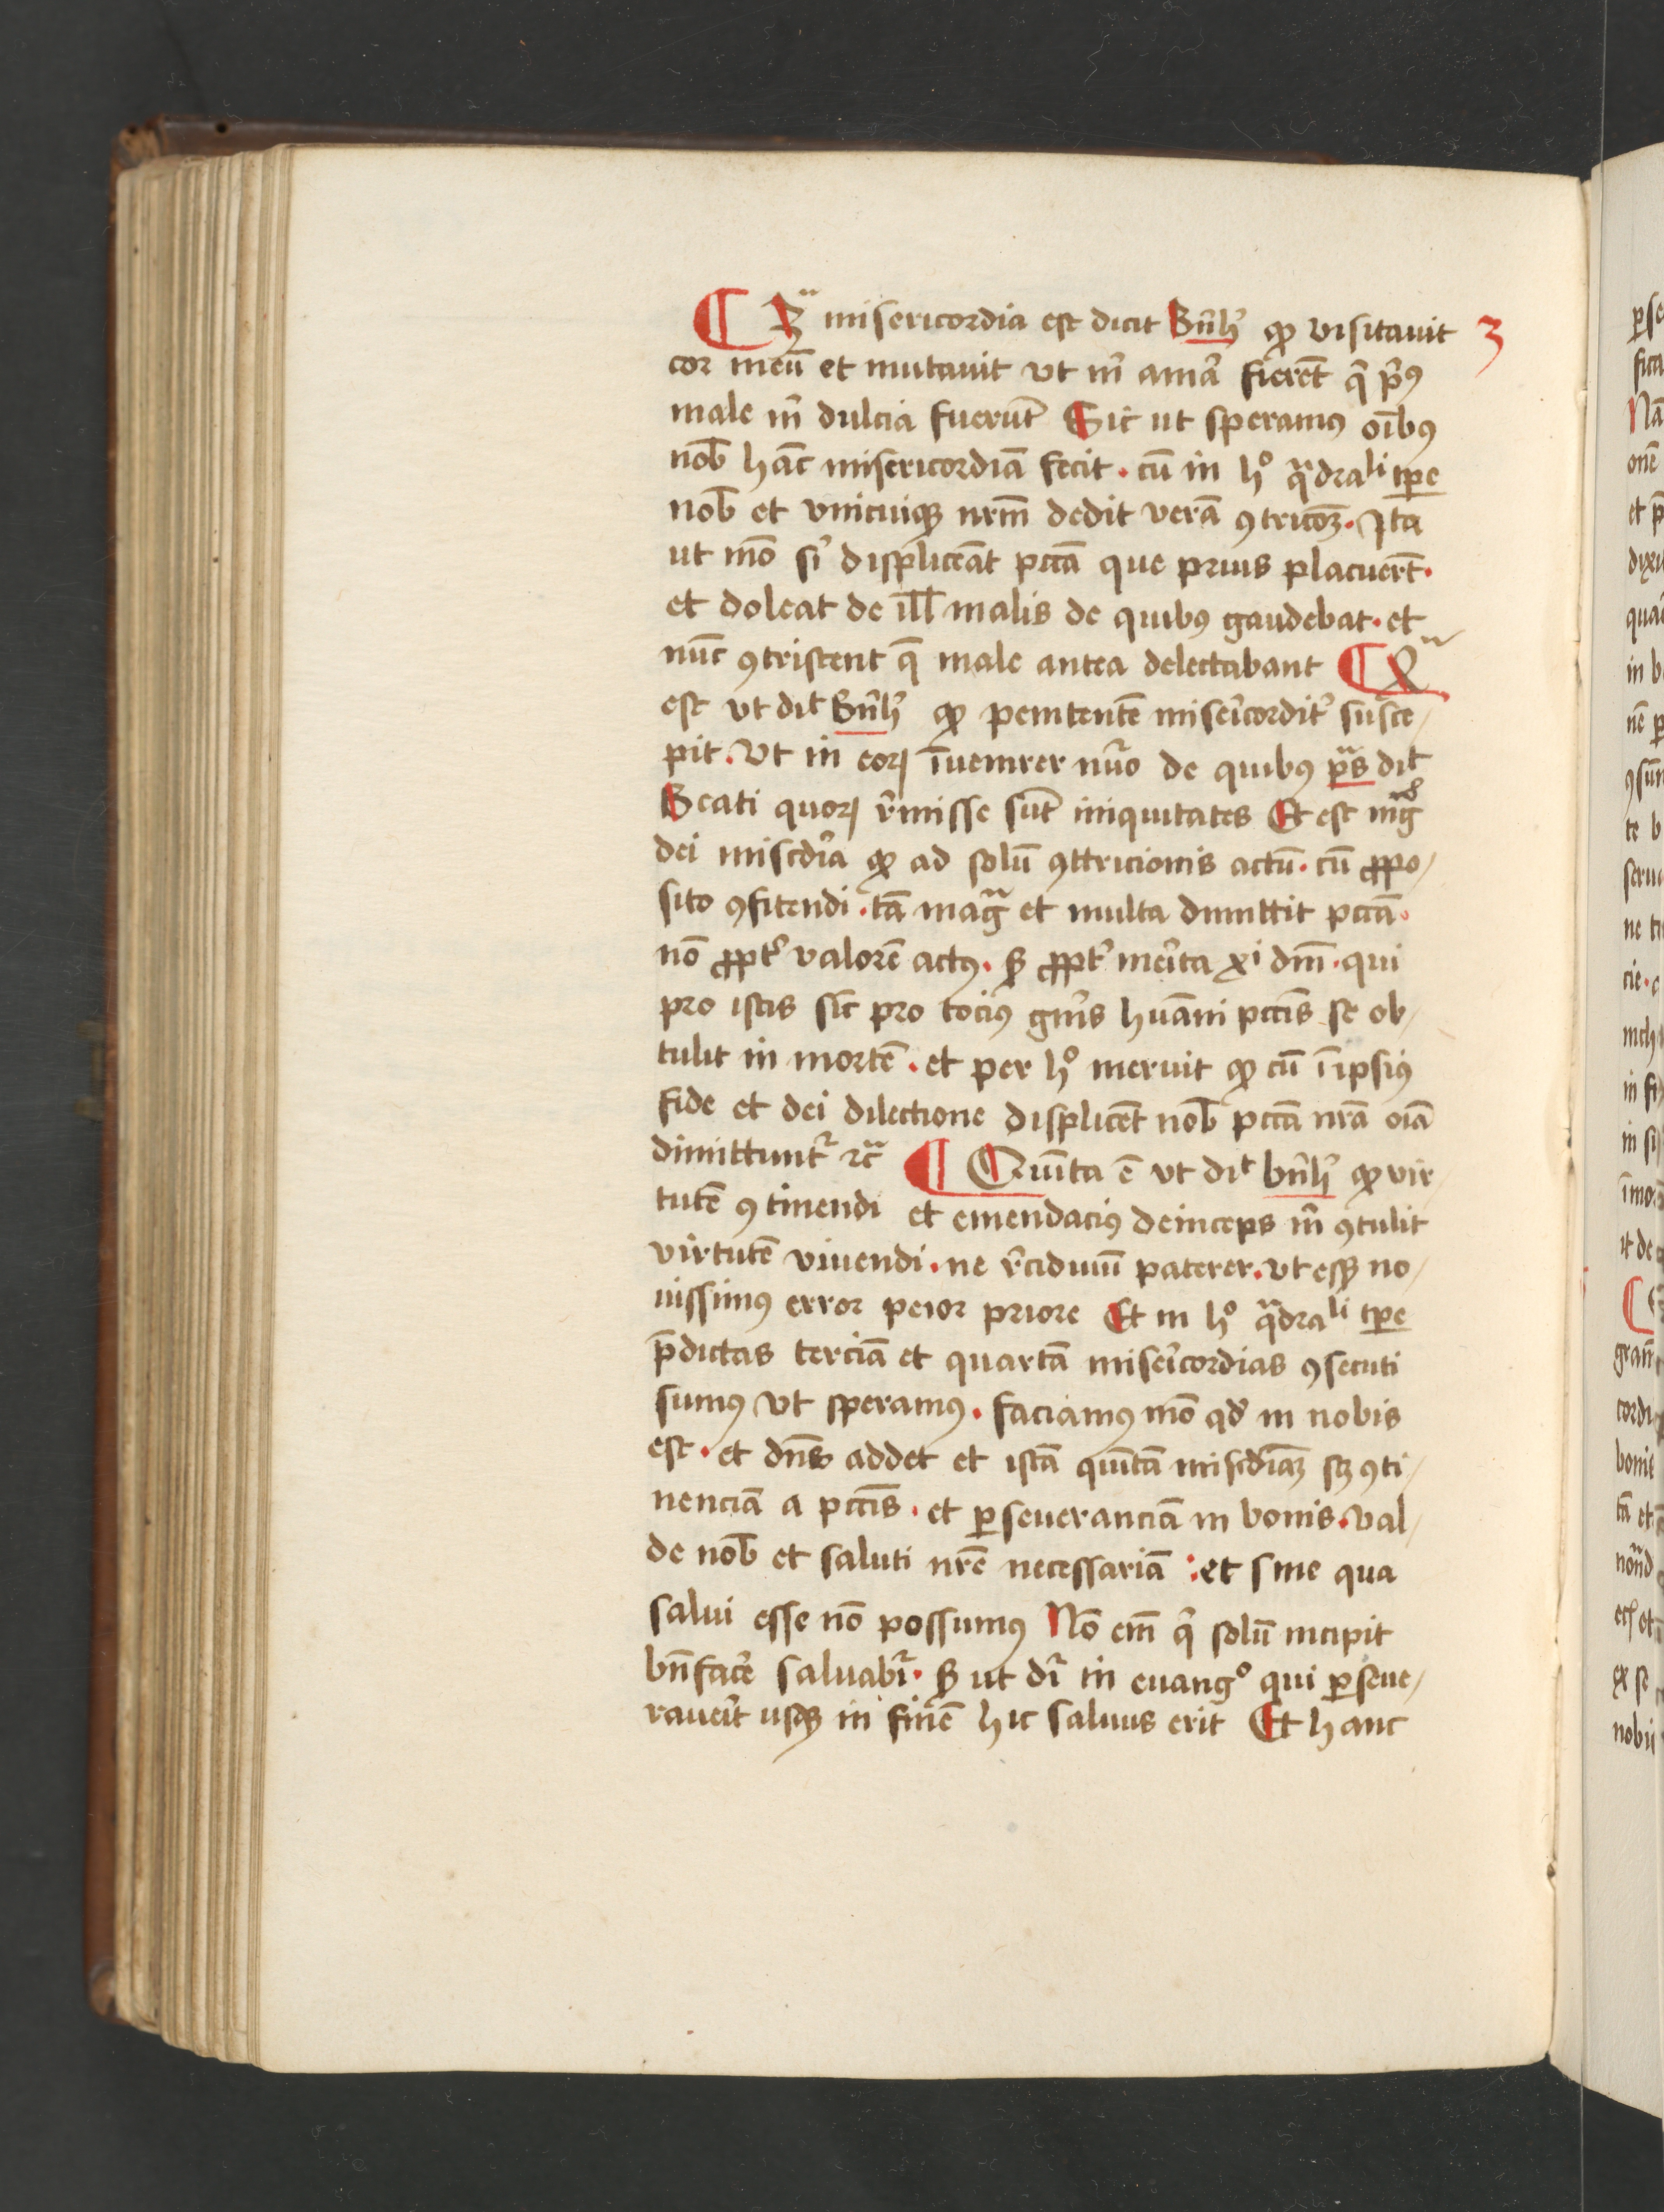 ¶ 3ᵃ misericordia est dicit Bñh̾ ꝙ visitauit 3
cor meū et mutauit vt m̄ amā fierēt q̄ pͥꝰ
male m̄ dulcia fuerūt Sic ut speramꝰ oībꝰ
nob̄ hāc misericordiā fecit . cū in hͦ qͣdraˡⁱ tꝑe
nob̄ et vnicuiqꝫ nr̄m dedit verā ꝯtricōꝫ . Ita
ut mō si᷑ displiceāt pctā que prius placuert̄ .
et doleat de ill̄ malis de quibꝰ gaudebat . et
nūc ꝯtristent q̄ male antea delectabant ¶ 4ᵃ
est vt dit̄ Bñh̾ ꝙ penitentē misericordit᷑ susce/
pit . Vt in eoꝝ īuenirer nūo de quibꝰ pͣs dit̄
Beati quoꝝ r̄misse sūt iniquitates Et est mͣg
dei misc̄dia ꝙ ad solū ꝯttricionis actū . cū ꝓpo/
sito ꝯfitendi . tā magͣ et multa dimittit pctā .
nō ꝓpt᷑ valorē actꝰ . sꝫ ꝓpt᷑ merita xp̄i dn̄i . qui
pro istis sic̄ pro tociꝰ gn̄is huāni pctīs se ob/
tulit in mortē . et per hͦ meruit ꝙ cū ī ipsiꝰ
fide et dei dilectione displicēt nob̄ pctā nr̄a oīa
dimittunt᷑ ⁊cͣ ¶ Quīta ē vt dit̄ bñh̾ ꝙ vir/
tutē ꝯtinendi et emendaciꝰ deinceps m̄ ꝯtulit
virtutē viuendi . ne r̄ciduuū paterer . vt eſſꝫ no/
uissimꝰ error peior priore Et in hͦ qͣdraˡⁱ tꝑe
p̄dictas terciā et quartā misericordias ꝯsecuti
sumꝰ vt speramꝰ . faciamꝰ mō qd̾ in nobis
est . et dn̄s addet et istā quītā misc̄diaꝫ sꝫ ꝯti/
nenciā a pctīs . et ꝑseueranciā in bonis . val/
de nob̄ et saluti nr̄e necessariā : et sine qua
salui esse nō possumꝰ Nō em̄ qͥ solū incipit
bn̄facē saluabr᷑ . sꝫ ut dr᷑ in euangͦ qui ꝑseue/
rauerit usqꝫ in finē hic saluus erit Et hanc